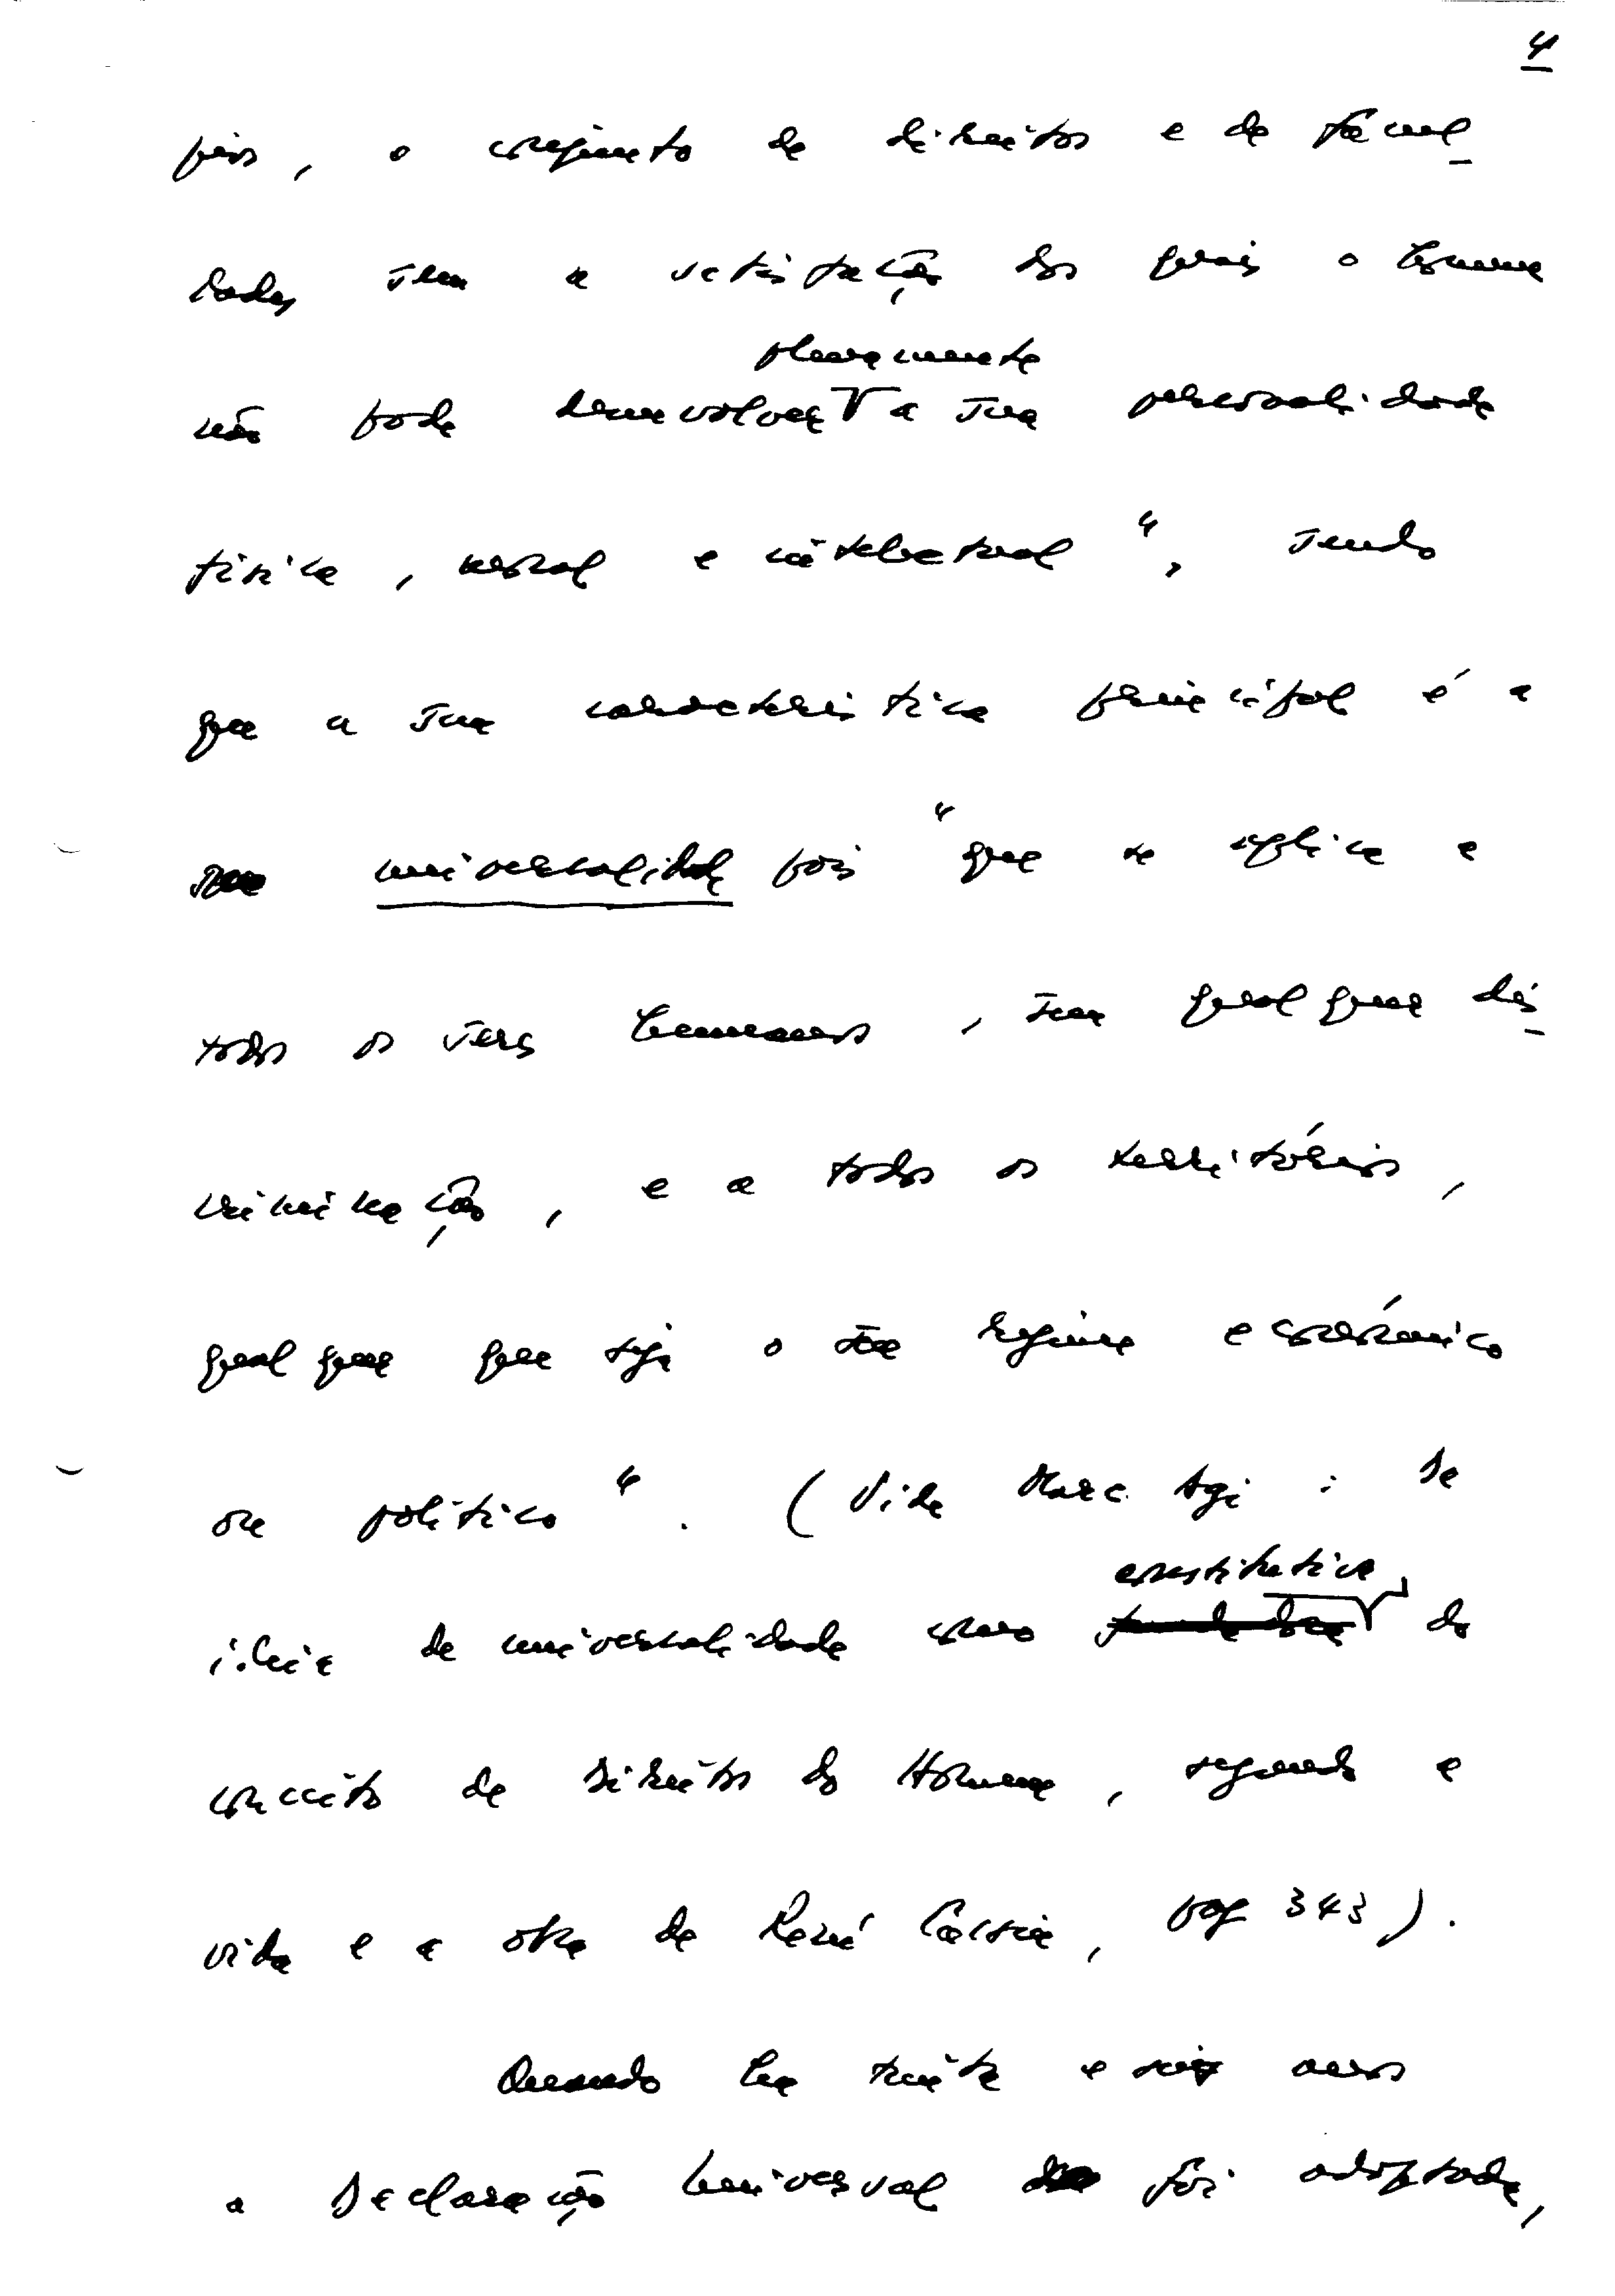 4
pois, o conjunto de direitos e de facul
dades sem a satisfação dos quais o homem
plenamente
não pode desenvolver a sua personalidade
física, moral e intelectual", sendo
que a sua característica principal é a
sua universalidade pois "que se aplica a
todos os seres humanos, sem qualquer dis
criminação, e a todos os territórios,
qualquer que seja o seu regime económico
ou político". (Vide Marc Agi: De
constitutiva
ideia de universalidade como fundadora do
conceito de Direitos do Homem, segundo a
vida e a obra de René Cassin, pag 343).
Quando há trinta e seis anos
a Declaração Universal foi adoptada,